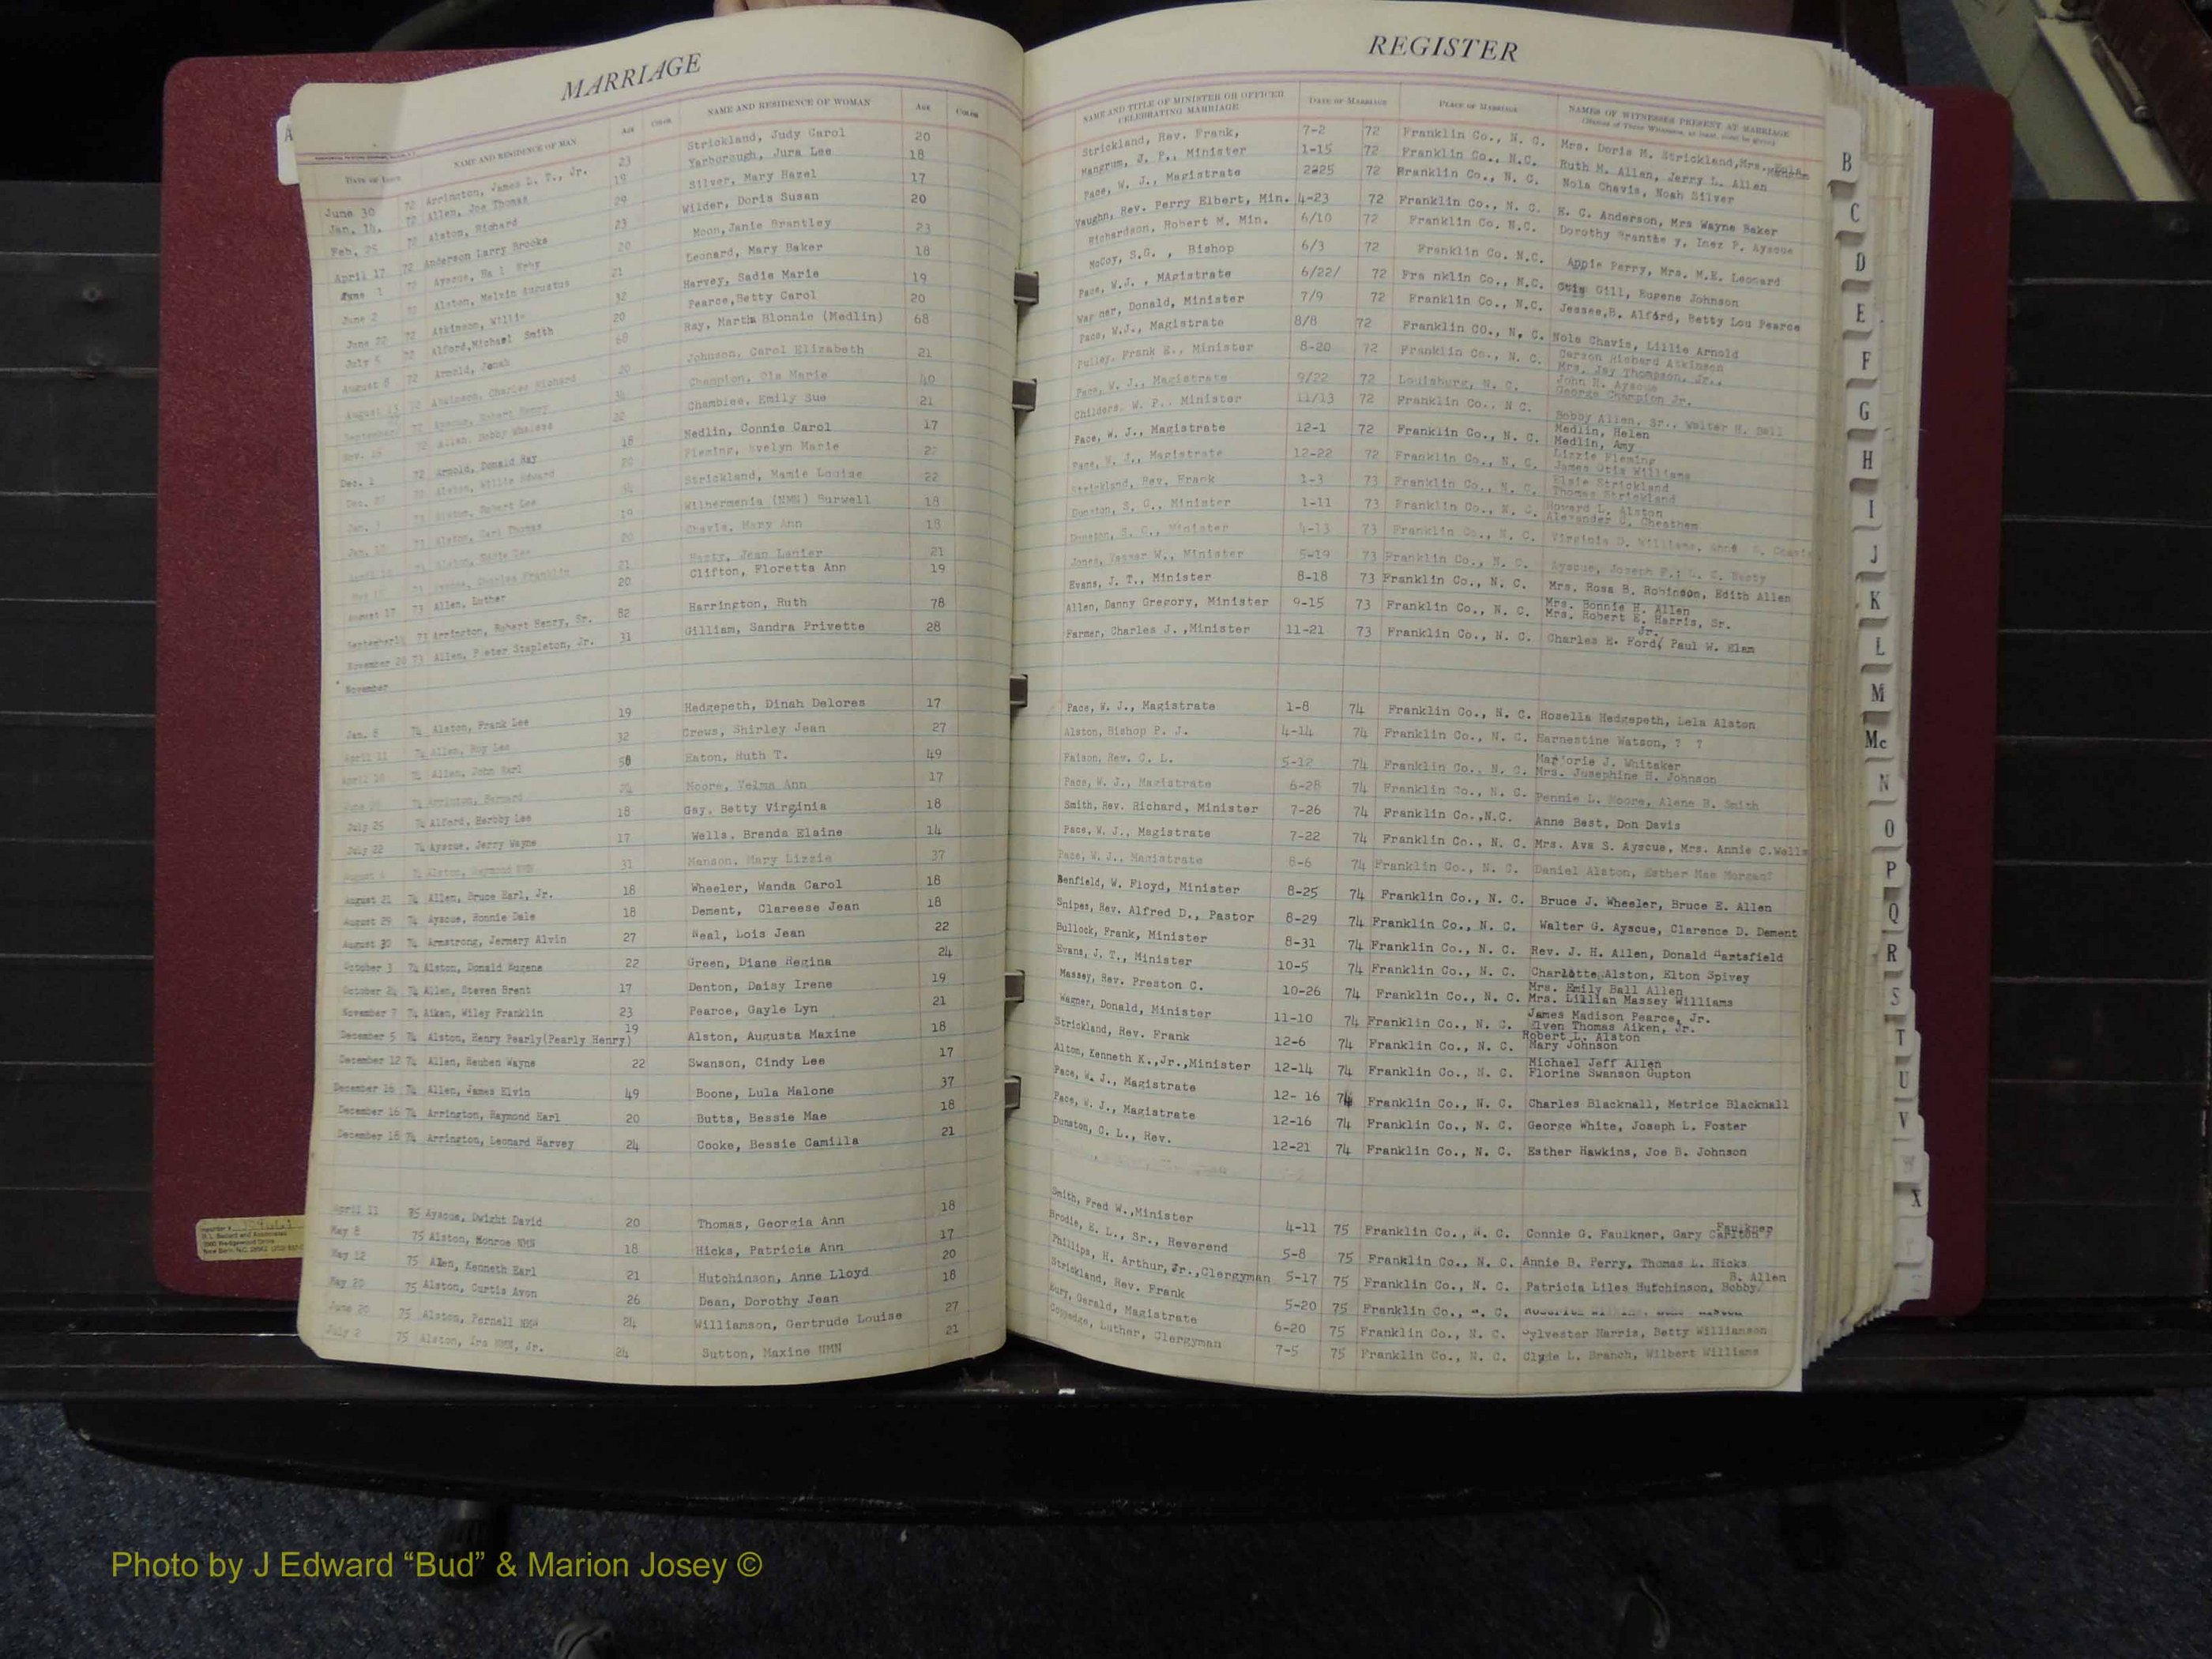 MARRIAGE
REGISTER
DATE OF
NAME AND RESIDENCE OF MAN
AGE
COLOR
NAME AND RESIDENCE OF WOMAN
AGE
COLOR
NAME AND TITLE OF MINISTER OR OFFICER
CELEBRATING MARRIAGE
DATE OF MARRIAGE
PLACE OF MARRIAGE
NAMES OF WITNESSES PRESENT AT MARRIAGE
June 30 72 Arrington, James L. T., Jr. 23 Strickland, Judy Carol 20 Strickland, Rev. Frank, 7-2 72 Franklin Co., N. C. Mrs. Doris H. Strickland, Mrs.
Jan. 14, 72 Allen, Joe Thomas 19 Yarborough, Jura Lee 18 Mangrum, J. P., Minister 1-15 72 Franklin Co., N.C. Ruth M. Allen, Jerry L. Allen
Feb. 25 72 Alston, Richard 29 Silver, Mary Hazel 17 Pace, W. J., Magistrate 2225 72 Franklin Co., N. C. Nola Chavis, Noah Silver
April 17 72 Anderson Larry Brooks 23 Wilder, Doris Susan 20 Vaughn, Rev. Perry Elbert, Min. 4-23 72 Franklin Co., N. C. E. C. Anderson, Mrs Wayne Baker
June 1 72 Ayscue, 20 Moon, Janie Brantley 23 Richardson, Robert M. Min. 6/10 72 Franklin Co. N.C. Dorothy Brantle y, Inez P. Ayscue
June 2 72 Alston, Melvin Augustus 21 Leonard, Mary Baker 18 McCoy, S.G. , Bishop 6/3 72 Franklin Co. N.C. Appie Perry, Mrs. M.E. Leonard
June 22 72 Atkinson, Willie 32 Harvey, Sadie Marie 19 Pace, W.J. , MAgistrate 6/22/ 72 Fra nklin Co., N.C. Otis Gill, Eugene Johnson
July 5 72 Alford,Michael Smith 20 Pearce,Betty Carol 20 Wag ner, Donald, Minister 7/9 72 Franklin Co., N.C. Jessee,B. Alford, Betty Lou Pearce
August 8 72 Arnold, Jonah 68 Ray, Martha Blonnie (Medlin) 68 Pace, W.J., Magistrate 8/8 72 Franklin CO., N. C. Nola Chavis, Lillie Arnold
August 72 Atkinson, Charles Richard 20 Johnson, Carol Elizabeth 21 Pulley, Frank E., Minister 8-20 72 Franklin Co., N. C. Carson Richard Atkinson
Mrs. Jay Thompson, Jr.,
September 72 Ayscue, Robert Henry Champion, Ola Marie 40 Pace, W. J., Magistrate 9/22 72 Louisburg, N. C. John H. Ayscue
George Champion Jr.
Nov. 72 Allen, Bobby Wheless 22 Chamblee, Emily Sue 21 Childers, W. P., Minister 11/13 72 Franklin Co., N C. Bobby Allen, Sr., Walter H. Bell
Dec. 1 72 Arnold, Donald Ray 18 Medlin, Connie Carol 17 Pace, W. J., Magistrate 12-1 72 Franklin Co., N. C. Medlin, Helen
Medlin, Amy
Dec. 72 Alston, Willie Edward 20 Fleming, Evelyn Marie Pace, W. J., Magistrate 12-22 72 Franklin Co., N. C. Lizzie Fleming
James Otis Williams
Jan. 73 Alston, Robert Lee Strickland, Mamie Louise 22 Strickland, Rev. Frank 1-3 73 Franklin Co., N. C. Elsie Strickland
Thomas Strickland
Jan. 73 Alston, Earl Thomas 19 Wilhermenia (NMN) Burwell 18 Dunston, S. G., Minister 1-11 73 Franklin Co., N. C. Howard L. Alston
Alexander C. Cheathem
April 73 Alston, Eddie Lee 20 Chavis, Mary Ann 18 Dunston, S. G., Minister 4-13 73 Franklin Co., N. C. Virginia D. Williams,
73 Ayscue, Charles Franklin 21 Hasty, Jean Lanier 21 Jones, W., Minister 5-19 73 Franklin Co., N. C. Ayscue, Joseph F.; L. C. Hasty
August 17 73 Allen, Luther 20 Clifton, Floretta Ann 19 Evans, J. T., Minister 8-18 73 Franklin Co., N. C. Mrs. Rosa B. Robinson, Edith Allen
September 73 Arrington, Robert Henry, Sr. 82 Harrington, Ruth 78 Allen, Danny Gregory, Minister 9-15 73 Franklin Co., N. C. Mrs. Bonnie H. Allen
Mrs. Robert E. Harris, Sr.
November 20 73 Allen, Peter Stapleton, Jr. 31 Gilliam, Sandra Privette 28 Farmer, Charles J. ,Minister 11-21 73 Franklin Co., N. C. Charles E. Ford, Jr. Paul W. Elam
November
Jan. 8 74 Alston, Frank Lee 19 Hedgepeth, Dinah Delores 17 Pace, W. J., Magistrate 1-8 74 Franklin Co., N. C. Rosella Hedgepeth, Lela Alston
April 11 74 Allen, Roy Lee 32 Crews, Shirley Jean 27 Alston, Bishop P. J. 4-14 74 Franklin Co., N. C. Earnestine Watson, ? ?
April 74 Allen, John Earl 58 Eaton, Ruth T. 49 Faison, Rev. C. L. 5-12 74 Franklin Co., N. C. Marjorie J. Whitaker
Mrs. Josephine H. Johnson
June 74 Arrington, Bernard 24 Moore, Velma Ann 17 Pace, W. J., Magistrate 6-28 74 Franklin Co., N. C. Pennie L. Moore, Alene B. Smith
July 25 74 Alford, Harbby Lee 18 Gay, Betty Virginia 18 Smith, Rev. Richard, Minister 7-26 74 Franklin Co.,N.C. Anne Best, Don Davis
July 22 74 Ayscue, Jerry Wayne 17 Wells, Brenda Elaine 14 Pace, W. J., Magistrate 7-22 74 Franklin Co., N. C. Mrs. Ava S. Ayscue, Mrs. Annie C.Wells
August 74 Alston, Raymond NMN 31 Manson, Mary Lizzie 37 Pace, W. J., Magistrate 8-6 74 Franklin Co., N. C. Daniel Alston, Esther Mae Morgan?
August 21 74 Allen, Bruce Earl, Jr. 18 Wheeler, Wanda Carol 18 Benfield, W. Floyd, Minister 8-25 74 Franklin Co., N. C. Bruce J. Wheeler, Bruce E. Allen
August 29 74 Ayscue, Ronnie Dale 18 Dement, Clareese Jean 18 Snipes, Rev. Alfred D., Pastor 8-29 74 Franklin Co., N. C. Walter G. Ayscue, Clarence D. Dement
August 30 74 Armstrong, Jermery Alvin 27 Neal, Lois Jean 22 Bullock, Frank, Minister 8-31 74 Franklin Co., N. C. Rev. J. H. Allen, Donald Hartsfield
October 3 74 Alston, Donald Eugene 22 Green, Diane Regina 24 Evans, J. T., Minister 10-5 74 Franklin Co., N. C. Charlotte Alston, Elton Spivey
October 24 74 Allen, Steven Brent 17 Denton, Daisy Irene 19 Massey, Rev. Preston C. 10-26 74 Franklin Co., N. C. Mrs. Emily Ball Allen
Mrs. Lillian Massey Williams
November 7 74 Aiken, Wiley Franklin 23 Pearce, Gayle Lyn 21 Wagner, Donald, Minister 11-10 74 Franklin Co., N. C. James Madison Pearce, Jr.
Elven Thomas Aiken, Jr.
December 5 74 Alston, Henry Pearly(Pearly Henry) 19 Alston, Augusta Maxine 18 Strickland, Rev. Frank 12-6 74 Franklin Co., N. C. Robert L. Alston
Mary Johnson
December 12 74 Allen, Reuben Wayne 22 Swanson, Cindy Lee 17 Alton, Kenneth K.,Jr.,Minister 12-14 74 Franklin Co., N. C. Michael Jeff Allen
Florine Swanson Gupton
December 16 74 Allen, James Elvin 49 Boone, Lula Malone 37 Pace, W. J., Magistrate 12- 16 74 Franklin Co., N. C. Charles Blacknall, Metrice Blacknall
December 16 74 Arrington, Raymond Earl 20 Butts, Bessie Mae 18 Pace, W. J., Magistrate 12-16 74 Franklin Co., N. C. George White, Joseph L. Foster
December 18 74 Arrington, Leonard Harvey 24 Cooke, Bessie Camilla 21 Dunston, C. L., Rev. 12-21 74 Franklin Co., N. C. Esther Hawkins, Joe B. Johnson
April 11 75 Ayscue, Dwight David 20 Thomas, Georgia Ann 18 Smith, Fred W.,Minister 4-11 75 Franklin Co., N. C. Connie G. Faulkner, Gary Carlton Faulkner
May 8 75 Alston, Monroe NMN 18 Hicks, Patricia Ann 17 Brodie, E. L., Sr., Reverend 5-8 75 Franklin Co., N. C. Annie B. Perry, Thomas L. Hicks
May 12 75 Allen, Kenneth Earl 21 Hutchinson, Anne Lloyd 20 Phillips, H. Arthur, Jr.,Clergyman 5-17 75 Franklin Co., N. C. Patricia Liles Hutchinson, Bobby B. Allen
May 20 75 Alston, Curtis Avon 26 Dean, Dorothy Jean 18 Strickland, Rev. Frank 5-20 75 Franklin Co., N. C.
June 20 75 Alston, Pernell NMN 24 Williamson, Gertrude Louise 27 Bury, Gerald, Magistrate 6-20 75 Franklin Co., N. C. Sylvester Harris, Betty Williamson
July 2 75 Alston, Ira NMN, Jr. 24 Sutton, Maxine NMN 21 Coppedge, Luther, Clergyman 7-5 75 Franklin Co., N. C. Clyde L. Branch, Wilbert Williams
A
B
C
D
E
F
G
H
I
J
K
L
M
Mc
N
O
P
Q
R
S
T
U
V
W
X
Photo by J Edward “Bud” & Marion Josey ©